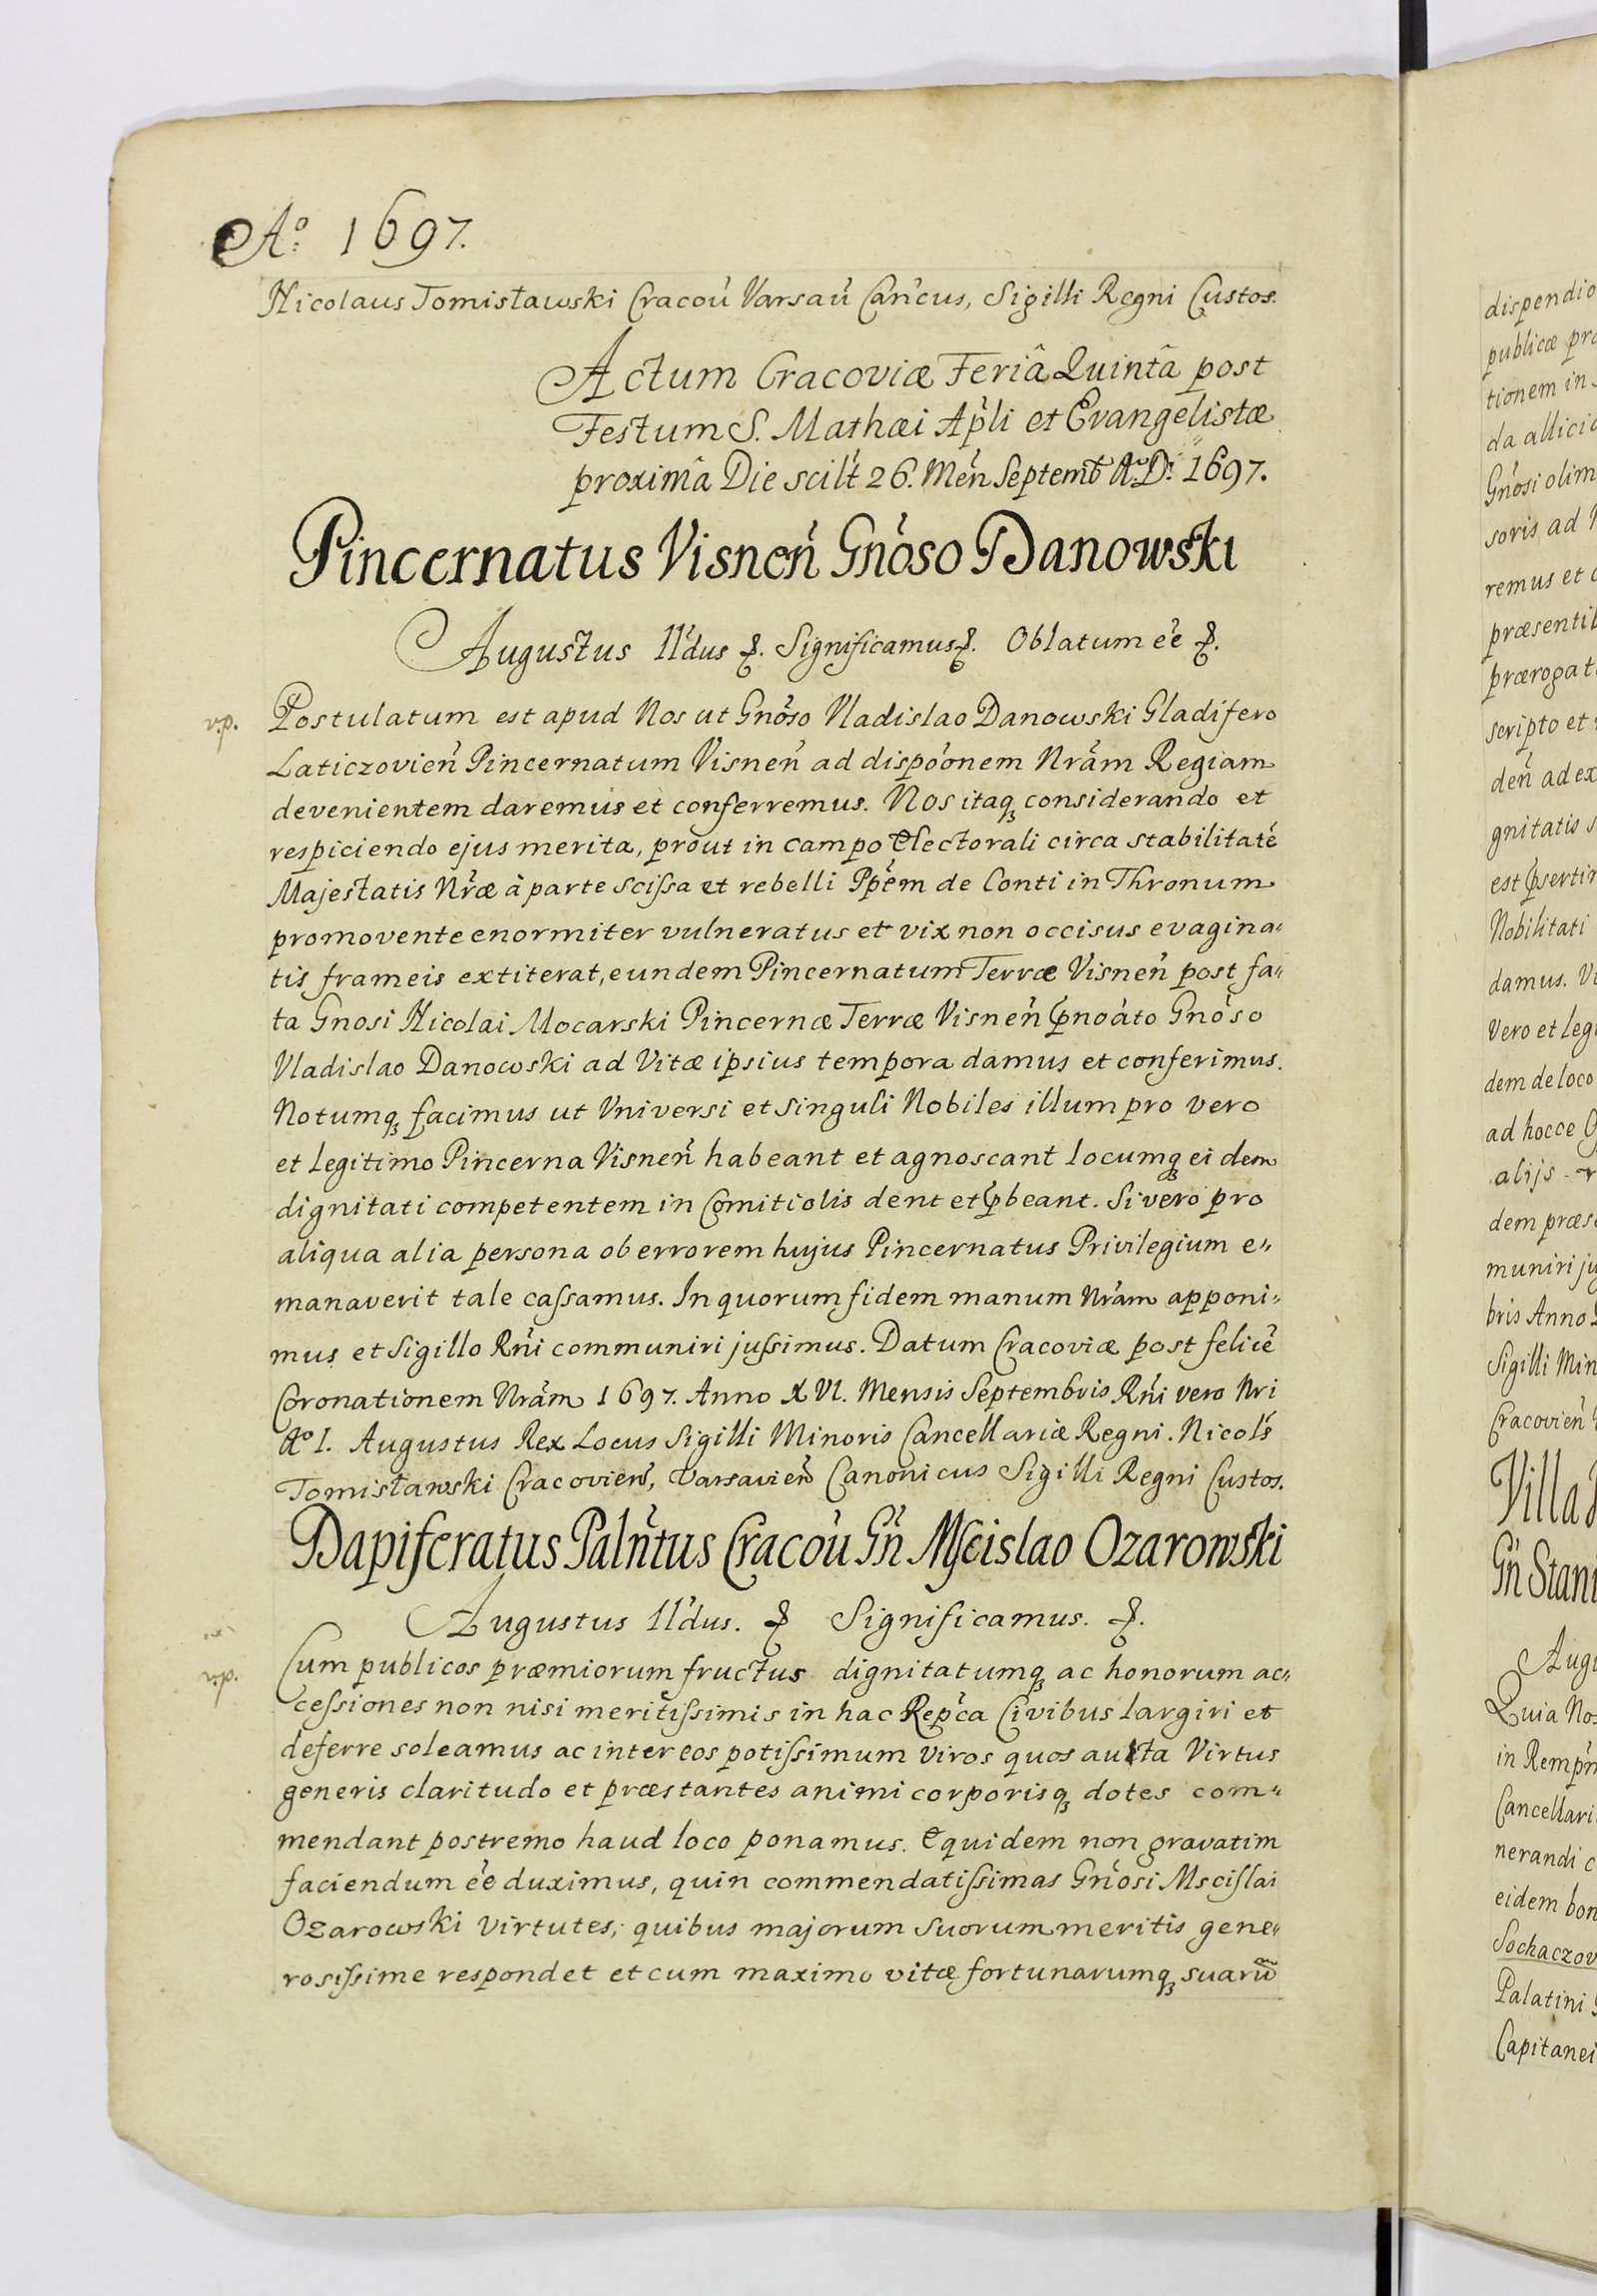 Aº 1697.
Nicolaus Tomisławski Cracou̇ Varsau̇ Can̓cus, Sigilli Regni Custos.
Actum Cracoviæ Feriâ Quintâ post
Festum S. Mathæi Ap̓li et Evangelistæ
proximâ Die scil̓t 26. Men̓ Septemb̓ Aº D: 1697.
Pincernatus Visnen̓ Gn̓oso Danowski
Augustus II̓dus &. Significamus &. Oblatum ee̓ &.
v.p.
Postulatum est apud Nos ut Gn̓oso Vladislao Danowski Gladifero
Laticzovien̓ Pincernatum Visnen̓ ad dispo̓onem Nr̓am Regiam
devenientem daremus et conferremus. Nos itaqꝫ considerando et
respiciendo ejus merita, prout in campo Electorali circa stabilitatē
Majestatis Nr̓æ à parte scissa et rebelli Pp̓em de Conti in Thronum
promovente enormiter vulneratus et vix non occisus evagina„
tis frameis extiterat, eundem Pincernatum Terræ Visnen̓ post fa„
ta Gnosi Nicolai Mocarski Pincernæ Terræ Visnen̓ p̃noa̓to Gno̓so
Vladislao Danowski ad Vitæ ipsius tempora damus et conferimus.
Notumqꝫ facimus ut Vniversi et Singuli Nobiles illum pro vero
et legitimo Pincerna Visnen̓ habeant et agnoscant locumqꝫ eidem
dignitati competentem in Comitiolis dent et p̃beant. Si vero pro
aliqua alia persona ob errorem hujus Pincernatus Privilegium e„
manaverit tale cassamus. In quorum fidem manum Nr̓am apponi„
mus et Sigillo Rn̓i communiri jussimus. Datum Cracoviæ post felicē
Coronationem Nr̓am 1697. Anno XVI. Mensis Septembris Rn̓i vero Nri
Aº I. Augustus Rex Locus Sigilli Minoris Cancellariæ Regni. Nicol̓s
Tomisławski Cracovien̓, Varsavien̓ Canonicus Sigilli Regni Custos.
Dapiferatus Paln̓tus Cracou̇ Gn̓ Mscislao Ozarowski
Augustus II̓dus. & Significamus. &.
v.p.
Cum publicos præmiorum fructus dignitatumqꝫ ac honorum ac„
cessiones non nisi meritissimis in hac Rep̓ca Civibus largiri et
deferre soleamus ac inter eos potissimum viros quos Virtus
generis claritudo et præstantes animi corporisqꝫ dotes com„
mendant postremo haud loco ponamus. Equidem non gravatim
faciendum ee̓ duximus, quin commendatissimas Gn̓osi Mscislai
Ozarowski Virtutes, quibus majorum suorum meritis gene„
rosissime respondet et cum maximo vitæ fortunarumqꝫ suarū
dispendio
publicæ
tionem in
da
Gn̓osi olim
soris ad
remus et
scripto et
den̓ ad
gnitatis
est
Nobilitati
damus.
Vero et
dem de loco
ad hocce
alijs
dem
muniri
bris Anno
Sigilli
Cracovien̓
Villa
Gn̓
Quia
in
nerandi
eidem
Palatini
Capitanei